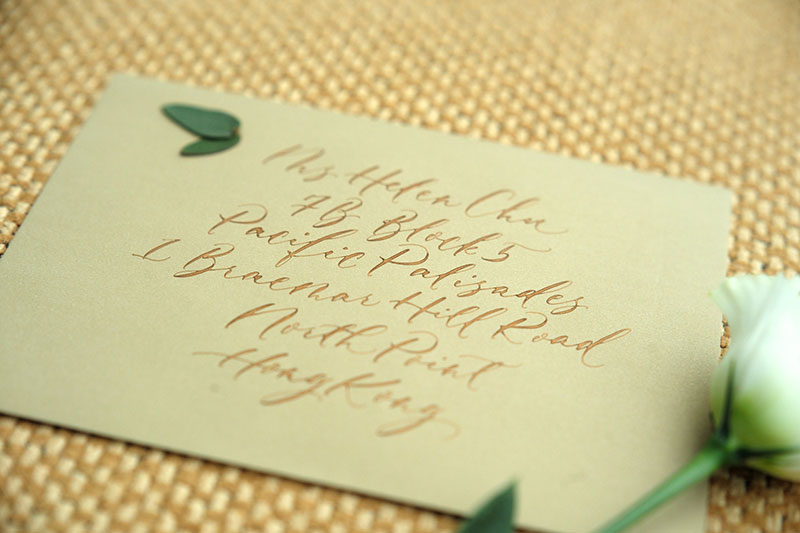 Ms Helen Chu
7B Block 5
Pacific Palisades
1 Braemar Hill Road
North Point
Hong Kong